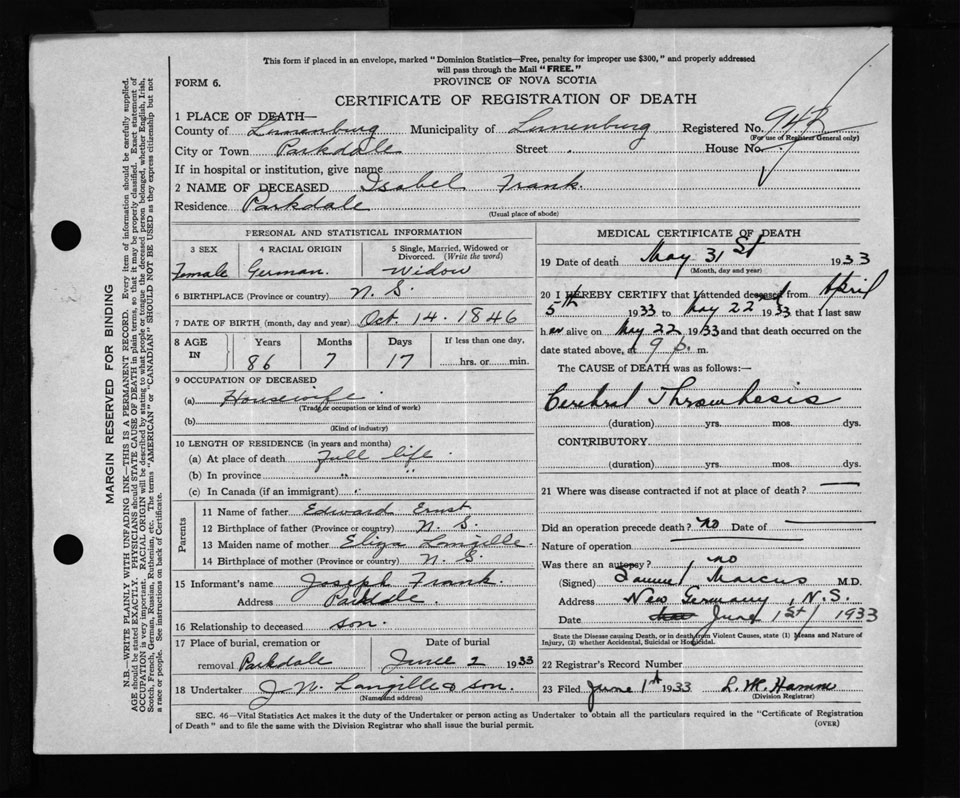 This form if placed in an envelope, marked "Dominion Statistics—Free, penalty for improper use $300," and properly addressed
will pass through the Mail "FREE."
FORM 6.
PROVINCE OF NOVA SCOTIA
CERTIFICATE OF REGISTRATION OF DEATH
1 PLACE OF DEATH—
County of Lunenburg Municipality of Lunenburg Registered No.
(For use of Registrar General only)
City or Town Parkdale Street House No.
If in hospital or institution, give name
2 NAME OF DECEASED Isabel Frank.
Residence Parkdale
(Usual place of abode)
PERSONAL AND STATISTICAL INFORMATION
3 SEX 4 RACIAL ORIGIN 5 Single, Married, Widowed or
Divorced. (Write the word)
Female German. Widow
6 BIRTHPLACE (Province or country) N. S.
7 DATE OF BIRTH (month, day and year) Oct. 14. 1846
8 AGE IN Years Months Days If less than one day,
86 7 17 hrs. or min.
9 OCCUPATION OF DECEASED
(a) Housewife
(Trade or occupation or kind of work)
(b)
(Kind of industry)
10 LENGTH OF RESIDENCE (in years and months)
(a) At place of death Full life.
(b) In province " "
(c) In Canada (if an immigrant)
Parents
11 Name of father Edward Ernst
12 Birthplace of father (Province or country) N. S.
13 Maiden name of mother Eliza Langille.
14 Birthplace of mother (Province or country) N. S
15 Informant's name Joseph Frank.
Address Parkdale.
16 Relationship to deceased son.
17 Place of burial, cremation or Date of burial
removal Parkdale June 2 1933
18 Undertaker J. N. Langille & son.
(Name and address)
MEDICAL CERTIFICATE OF DEATH
19 Date of death May 31 St 1933
(Month, day and year)
20 I HEREBY CERTIFY that I attended deceased from April
5th 1933 to May 22 1933 that I last saw
h er alive on May 22 1933 and that death occurred on the
date stated above, at 9 p. m.
The CAUSE of DEATH was as follows:—
Cerebral Thrombesis
(duration) yrs. mos. dys.
CONTRIBUTORY
(duration) yrs. mos. dys.
21 Where was disease contracted if not at place of death?
Did an operation precede death? no Date of
Nature of operation
Was there an autopsy? no
(Signed) Samuel Marcus M.D.
Address New Germany, N.S.
Date June 1st/ 1933
State the Disease causing Death, or in death from Violent Causes, state (1) Means and Nature of
Injury, (2) whether Accidental, Suicidal or Homicidal.
22 Registrar's Record Number
23 Filed June 1st 1933 L. M. Hamm
(Division Registrar)
SEC. 46—Vital Statistics Act makes it the duty of the Undertaker or person acting as Undertaker to obtain all the particulars required in the "Certificate of Registration
of Death" and to file the same with the Division Registrar who shall issue the burial permit.
(OVER)
MARGIN RESERVED FOR BINDING
N.B.—WRITE PLAINLY WITH UNFADING INK—THIS IS A PERMANENT RECORD. Every item of information should be carefully supplied.
AGE should be stated EXACTLY. PHYSICIANS should STATE CAUSE OF DEATH in plain terms, so that it may be properly classified. Exact statement of
OCCUPATION is very important. RACIAL ORIGIN will be described by stating to what people or tongue the deceased person belonged, whether English, Irish,
Scotch, French, German, Russian, Ruthenian, etc. The terms "AMERICAN" or "CANADIAN" SHOULD NOT BE USED as they express citizenship but not
a race or people. See instructions on back of Certificate.